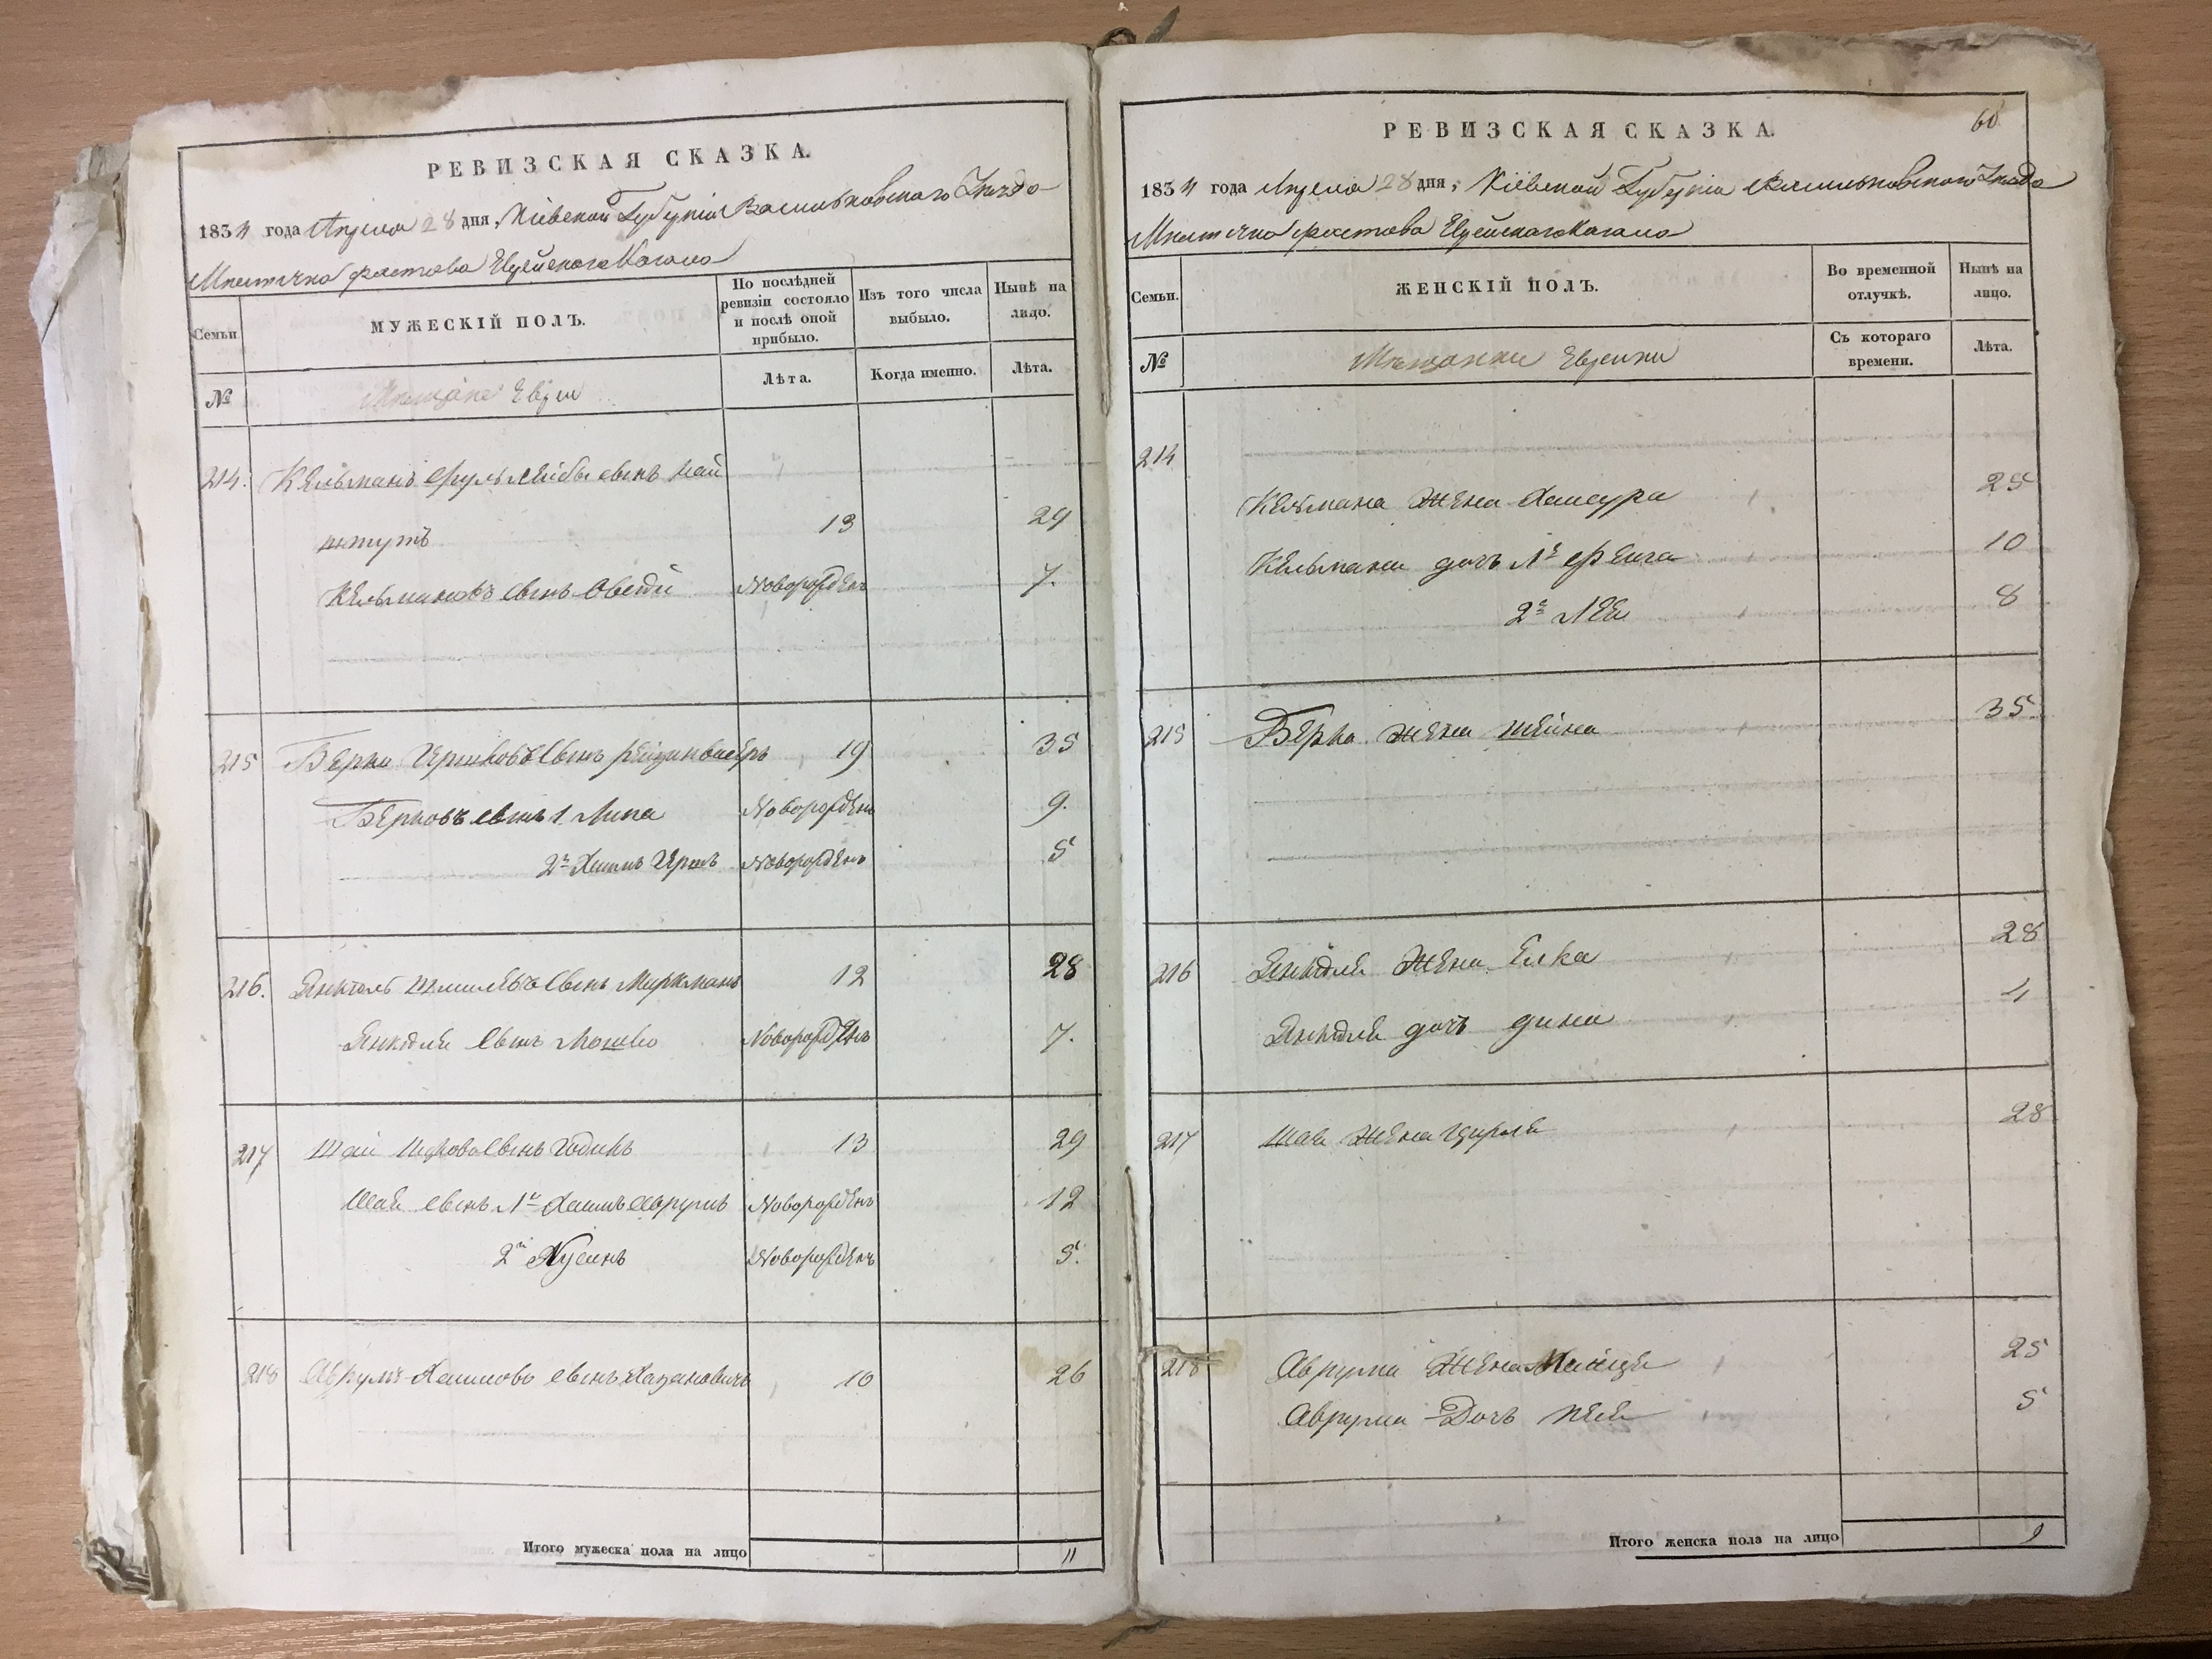 РЕВИЗСКАЯ СКАЗКА.
1834 года Апреля 28 дня, Кіевской Губерніи Васильковскаго Уезда
Мѣстечка Фастова Еврейскаго Кагала
Семьи.
МУЖЕСКІЙ ПОЛЪ.
По послѣдней ревизіи состояло и послѣ оной прибыло.
Изъ того числа выбыло.
Нынѣ на лицо.
№
Мѣщане Евреи
Лѣта.
Когда именно.
Лѣта.
214. Кельманъ Сруль Лейбы сынъ
13 29
Кельмановъ сынъ Овсей Новорожденъ 7.
215 Берко Гершковъ сынъ 19 35
Берковъ сынъ 1 Липа Новорожденъ 9.
2й Хаимъ Гершъ Новорожденъ 5
216. Янкель Шмилевъ сынъ Миркманъ 12 28
Янкеля сынъ Мошко Новорожденъ 7.
217 Шай сынъ 13 29
Шаи сынъ 1й Хаимъ Аврумъ Новорожденъ 12
2й Нусинъ Новорожденъ 5.
218 Аврумъ Хаимовъ сынъ Хазановичъ 10 26
Итого мужеска пола на лицо 11
60
РЕВИЗСКАЯ СКАЗКА.
1834 года Апреля 28 дня, Кіевской Губерніи Васильковскаго Уезда
Мѣстечка Фастова Еврейскаго Кагала
Семьи.
ЖЕНСКІЙ ПОЛЪ.
Во временной отлучкѣ.
Нынѣ на лицо.
№
Мѣщанки Еврейки
Съ котораго времени.
Лѣта.
214
Кельмана жена Хаисура 25
Кельмана дочь 1я Фейга 10
2я Лея 8
215 Берка жена Шейна 35
216 Янкеля жена Елка 28
Янкеля дочь Дина 4
217 Шаи жена Цирля 28
218 Аврума жена 25
Аврума Дочь 5
Итого женска пола на лицо 9